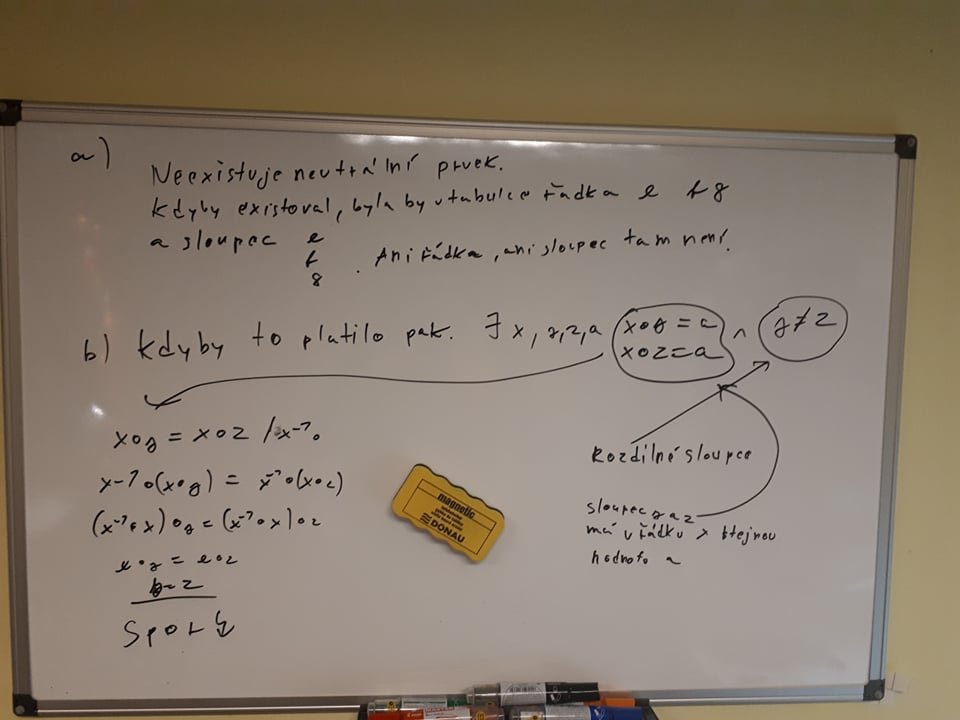 a)
Neexistuje neutrální prvek.
Kdyby existoval, byla by v tabulce řádka e f g
a sloupec e
f
g
. Ani řádka, ani sloupec tam není.
b) Kdyby to platilo pak. ∃ x, y, z, a
x∘y = a
x∘z = a
∧ y ≠ z
x∘y = x∘z / x⁻¹∘
x⁻¹∘(x∘y) = x⁻¹∘(x∘z)
(x⁻¹∘x)∘y = (x⁻¹∘x)∘z
e∘y = e∘z
y = z
Spor ↯
Rozdílné sloupce
sloupec y a z
má v řádku x stejnou
hodnoto a
magnetic
DONAU